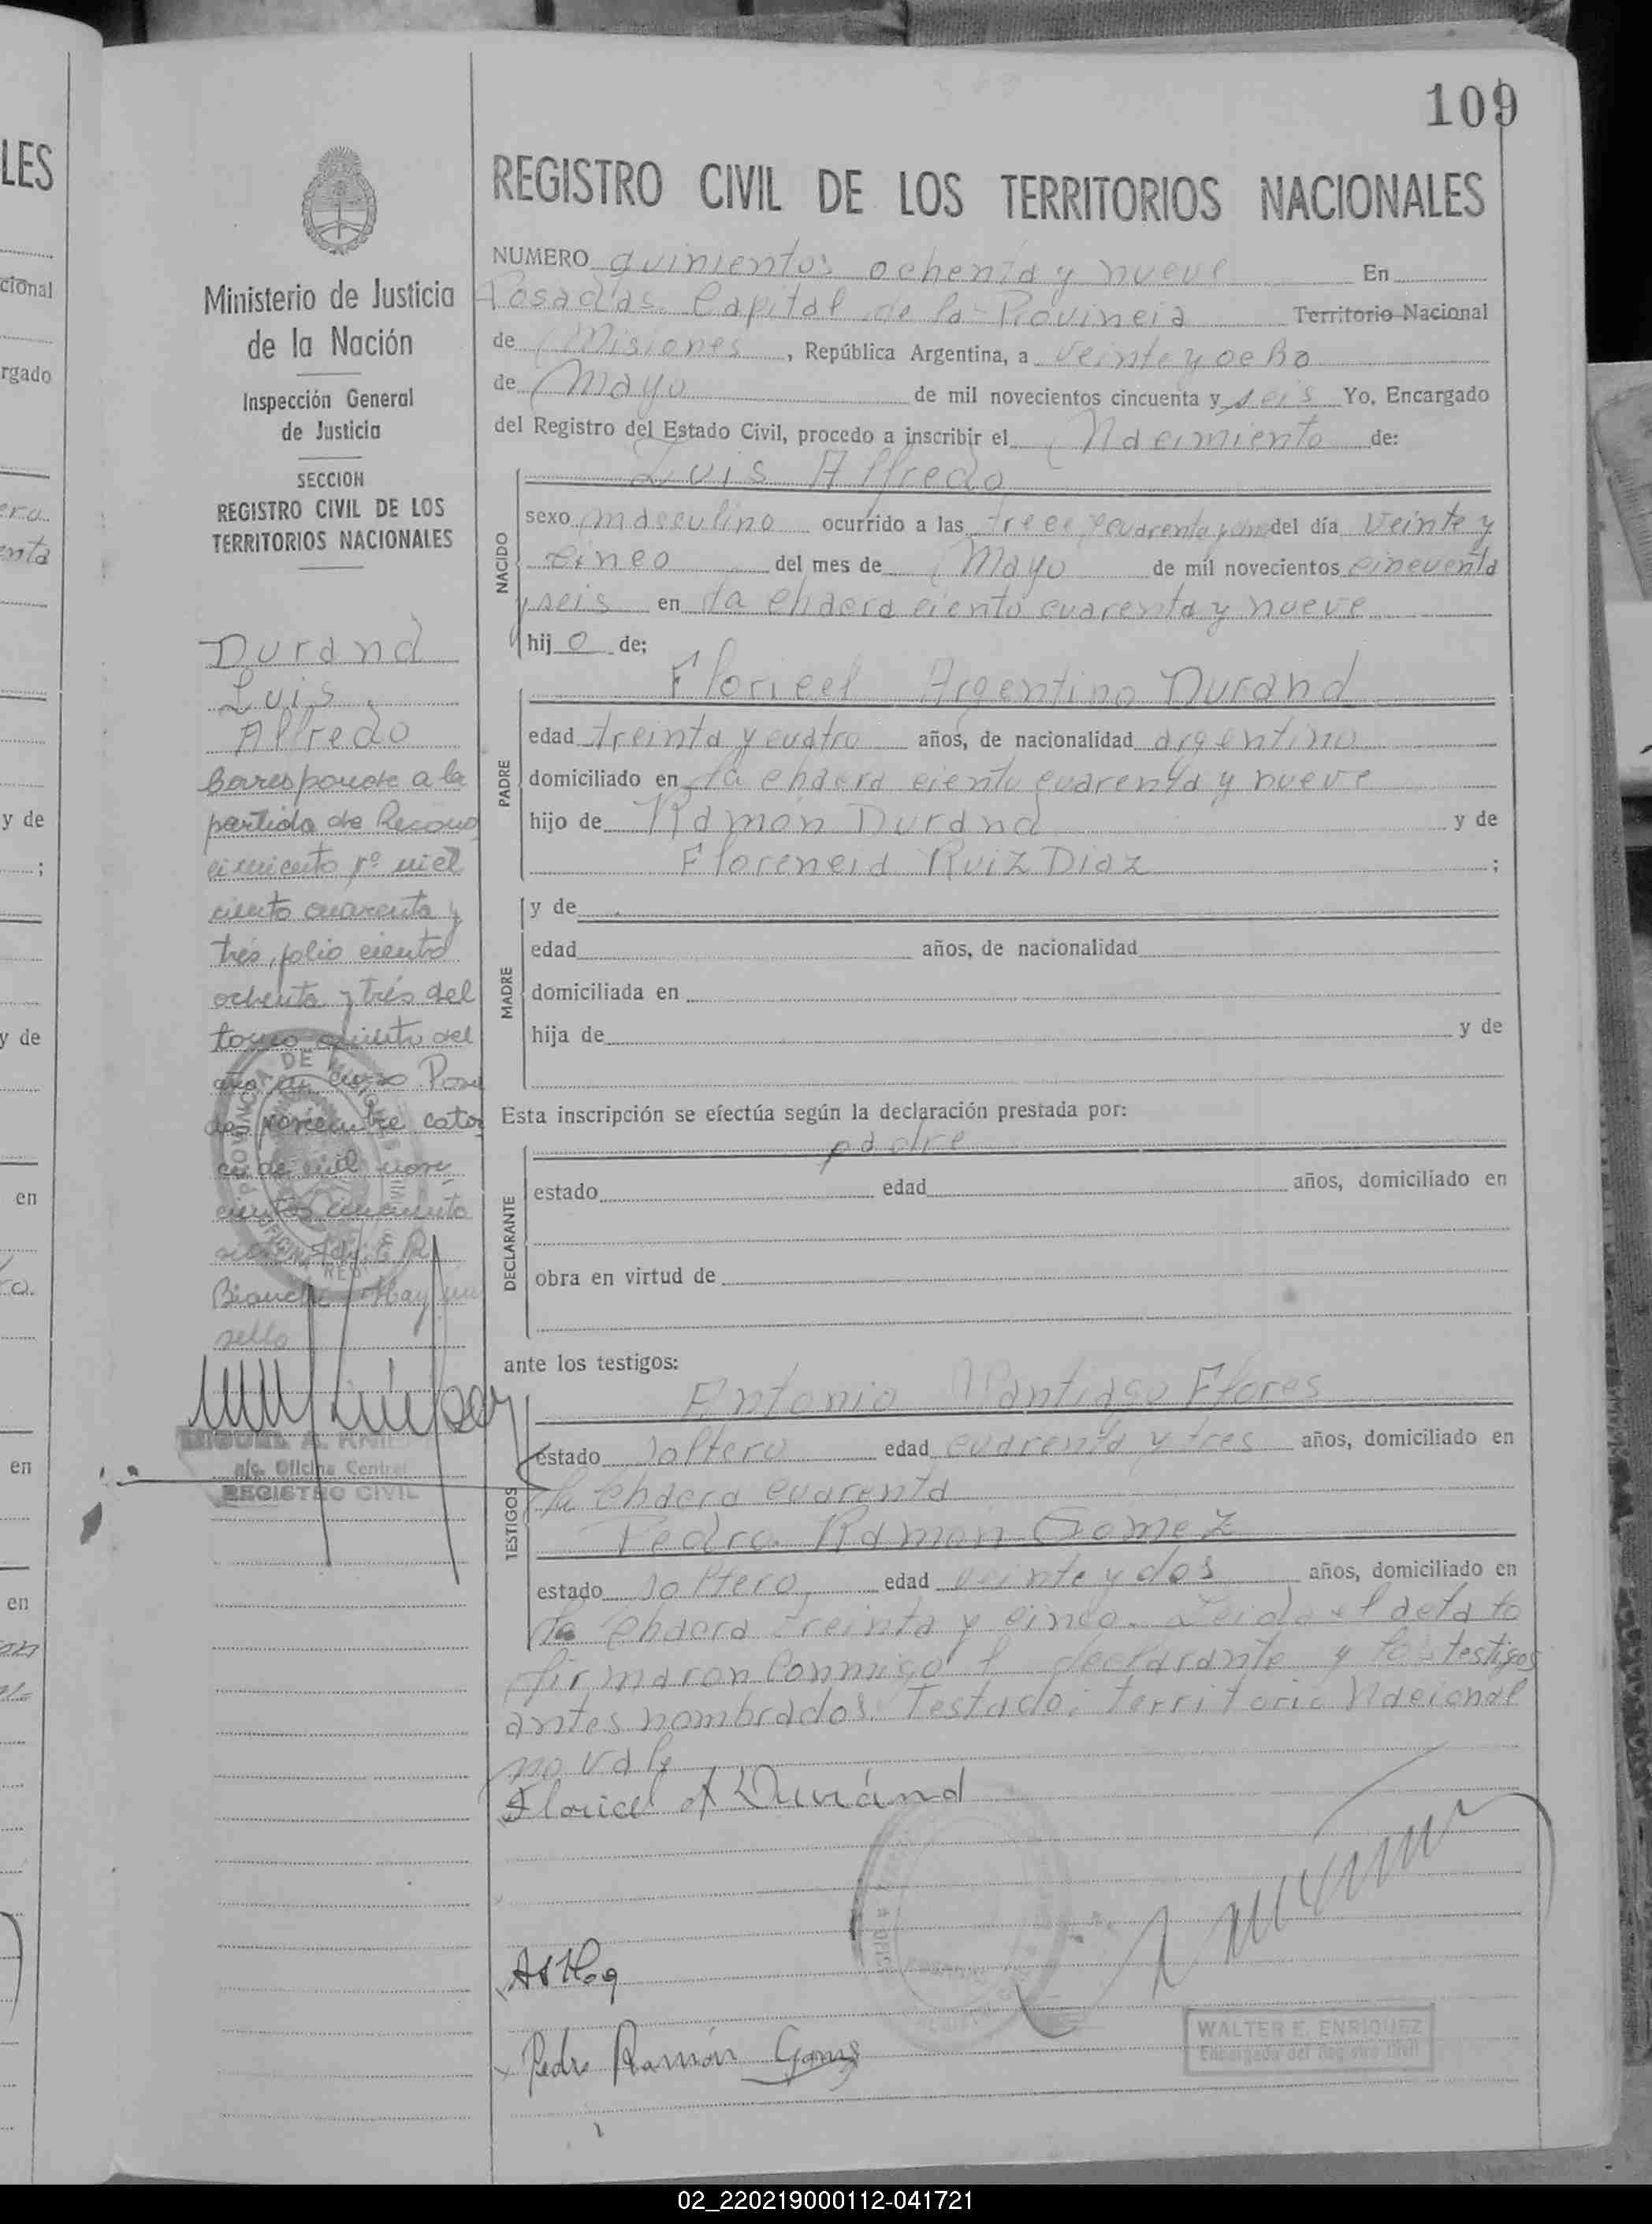 109
LES
cional
rgado
y de
y de
en
en
en
Ministerio de Justicia
de la Nación
Inspección General
de Justicia
SECCION
REGISTRO CIVIL DE LOS
TERRITORIOS NACIONALES
Durand
Luis
Alfredo
Corresponde a la
partida de Recono
cimiento nº mil
ciento cuarenta y
trés, folio ciento
ochenta y trés del
tomo quinto del
año en curso Posa
das noviembre cator
ce de mil nove
cientos cincuenta
seis Fdo: E. R.
Bianchi Hay un
sello
MIGUEL A.
a/c. Oficina Central
REGISTRO CIVIL
REGISTRO CIVIL DE LOS TERRITORIOS NACIONALES
NUMERO quinientos ochenta y nueve En
Posadas Capital de la Provincia Territorio Nacional
de Misiones, República Argentina, a veinte y ocho
de Mayo de mil novecientos cincuenta y seis Yo, Encargado
del Registro del Estado Civil, procedo a inscribir el Nacimiento de:
Luis Alfredo
NACIDO
sexo masculino ocurrido a las trece y cuarenta y del día veinte y
cinco del mes de Mayo de mil novecientos cincuenta
y seis en la chacra ciento cuarenta y nueve
hijo de;
PADRE
Floricel Argentino Durand
edad treinta y cuatro años, de nacionalidad argentino
domiciliado en la chacra ciento cuarenta y nueve
hijo de Ramón Durand y de
Florencia Ruiz Diaz ;
MADRE
y de
edad años, de nacionalidad
domiciliada en
hija de y de
Esta inscripción se efectúa según la declaración prestada por:
DECLARANTE
padre
estado edad años, domiciliado en
obra en virtud de
ante los testigos:
TESTIGOS
Antonio Santiago Flores
estado soltero edad cuarenta y tres años, domiciliado en
la chacra cuarenta
Pedro Ramón Gomez
estado soltero edad veinte y dos años, domiciliado en
la chacra treinta y cinco. Leida el acta la
firmaron conmigo el declarante y los testigos
antes nombrados. Testado: Territorio Nacional
no vale
Floricel A Duránd
Pedro Ramón Gomez
WALTER E. ENRIQUEZ
Encargado del Registro Civil
02_220219000112-041721